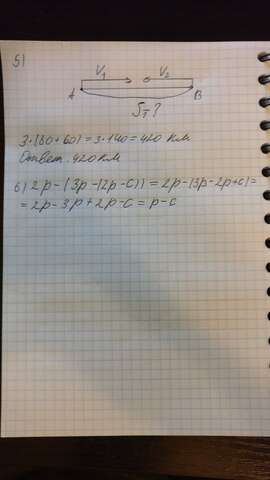 5)
V₁ V₂
A B
S-?
3·(80+60)=3·140=420 км.
Ответ: 420 км
6) 2p-(3p-(2p-c))=2p-(3p-2p+c)=
=2p-3p+2p-c=p-c